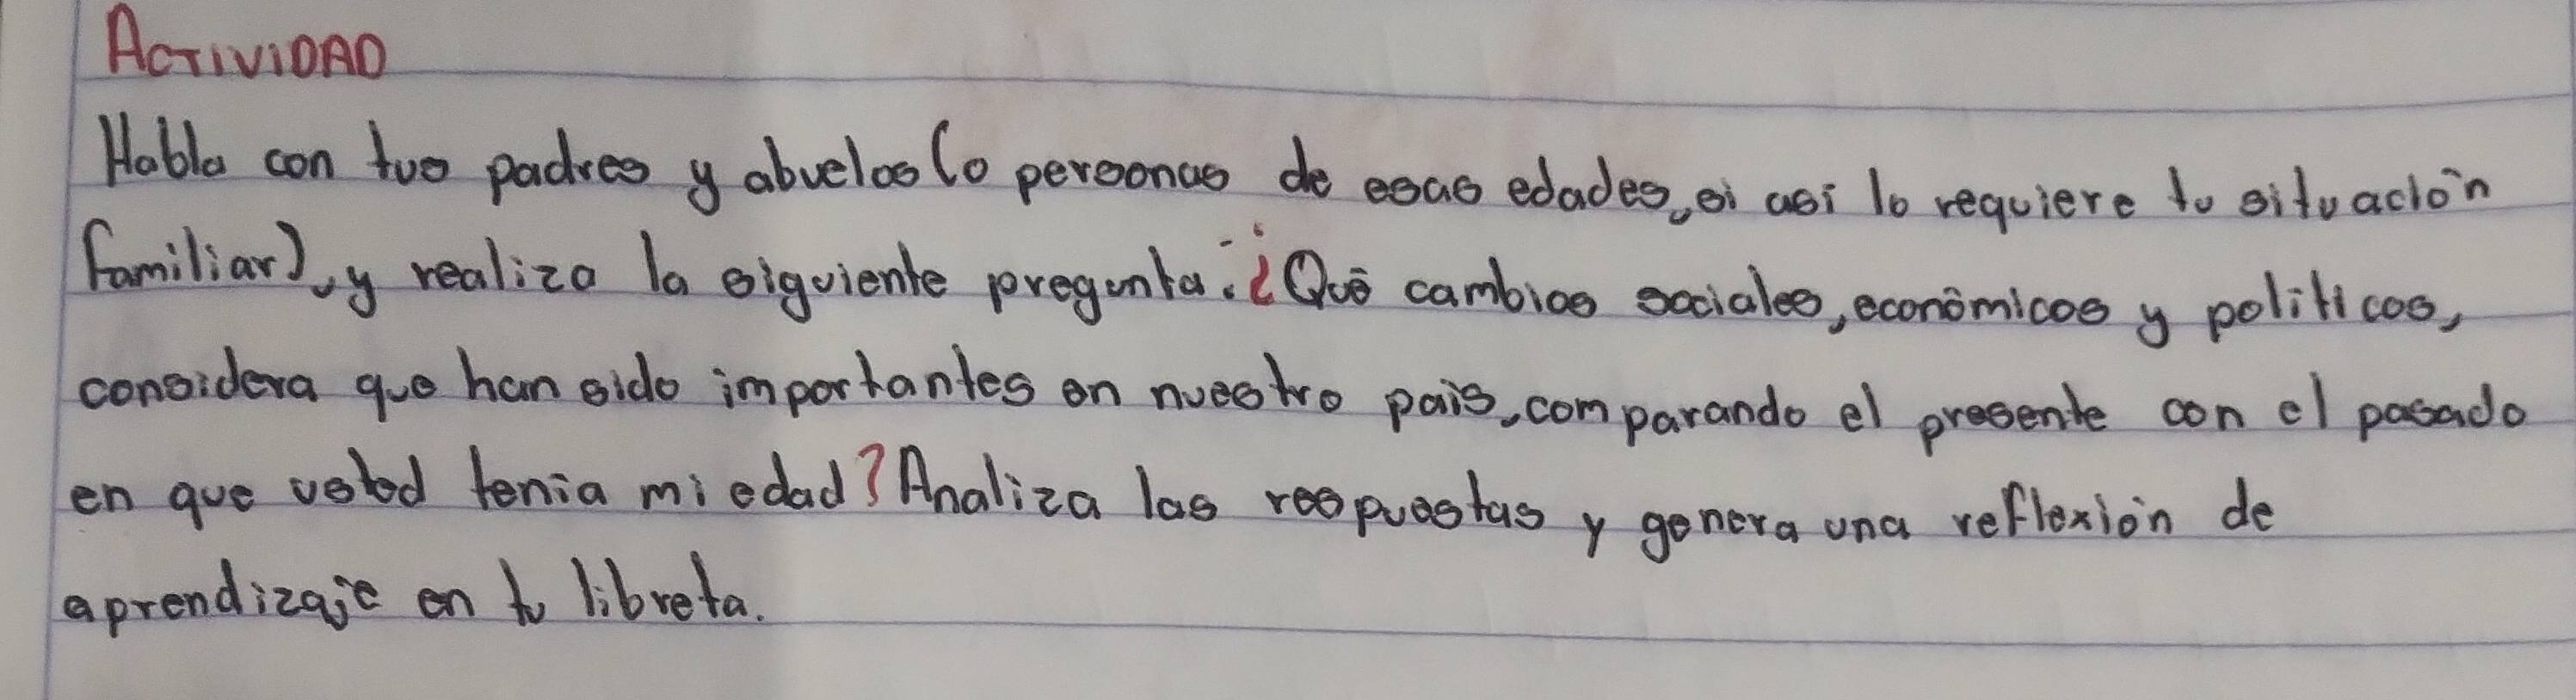 ACTIVIDAD
Habla con tus padres y abuelos (o personas de esas edades, si así lo requiere tu situación
familiar), y realiza la siguiente pregunta: ¿Qué cambios sociales, económicos y políticos,
considera que han sido importantes en nuestro país, comparando el presente con el pasado
en que usted tenía mi edad? Analiza las respuestas y genera una reflexión de
aprendizaje en tu libreta.